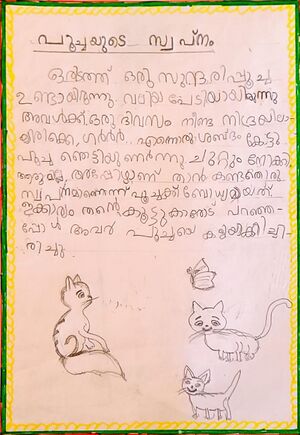 പൂച്ചയുടെ സ്വപ്നം
ഒരിടത്ത് ഒരു സുന്ദരിപ്പൂച്ച
ഉണ്ടായിരുന്നു. വലിയ പേടിയായിരുന്നു
അവൾക്ക്. ഒരു ദിവസം നീണ്ട നിദ്രയിലാ
യിരിക്കെ, ഗർർർ.. എന്നൊരു ശബ്ദം കേട്ടു.
പൂച്ച ഞെട്ടിയുണർന്നു ചുറ്റും നോക്കി.
ആരുമില്ല, അപ്പോഴാണ് താൻ കണ്ടതൊരു
സ്വപ്നമാണെന്ന് പൂച്ചക്ക് ബോധ്യമായത്.
ഇക്കാര്യം തന്റെ കൂട്ടുകാരോട് പറഞ്ഞ
പ്പോൾ അവർ പൂച്ചയെ കളിയാക്കിച്ചി
രിച്ചു.